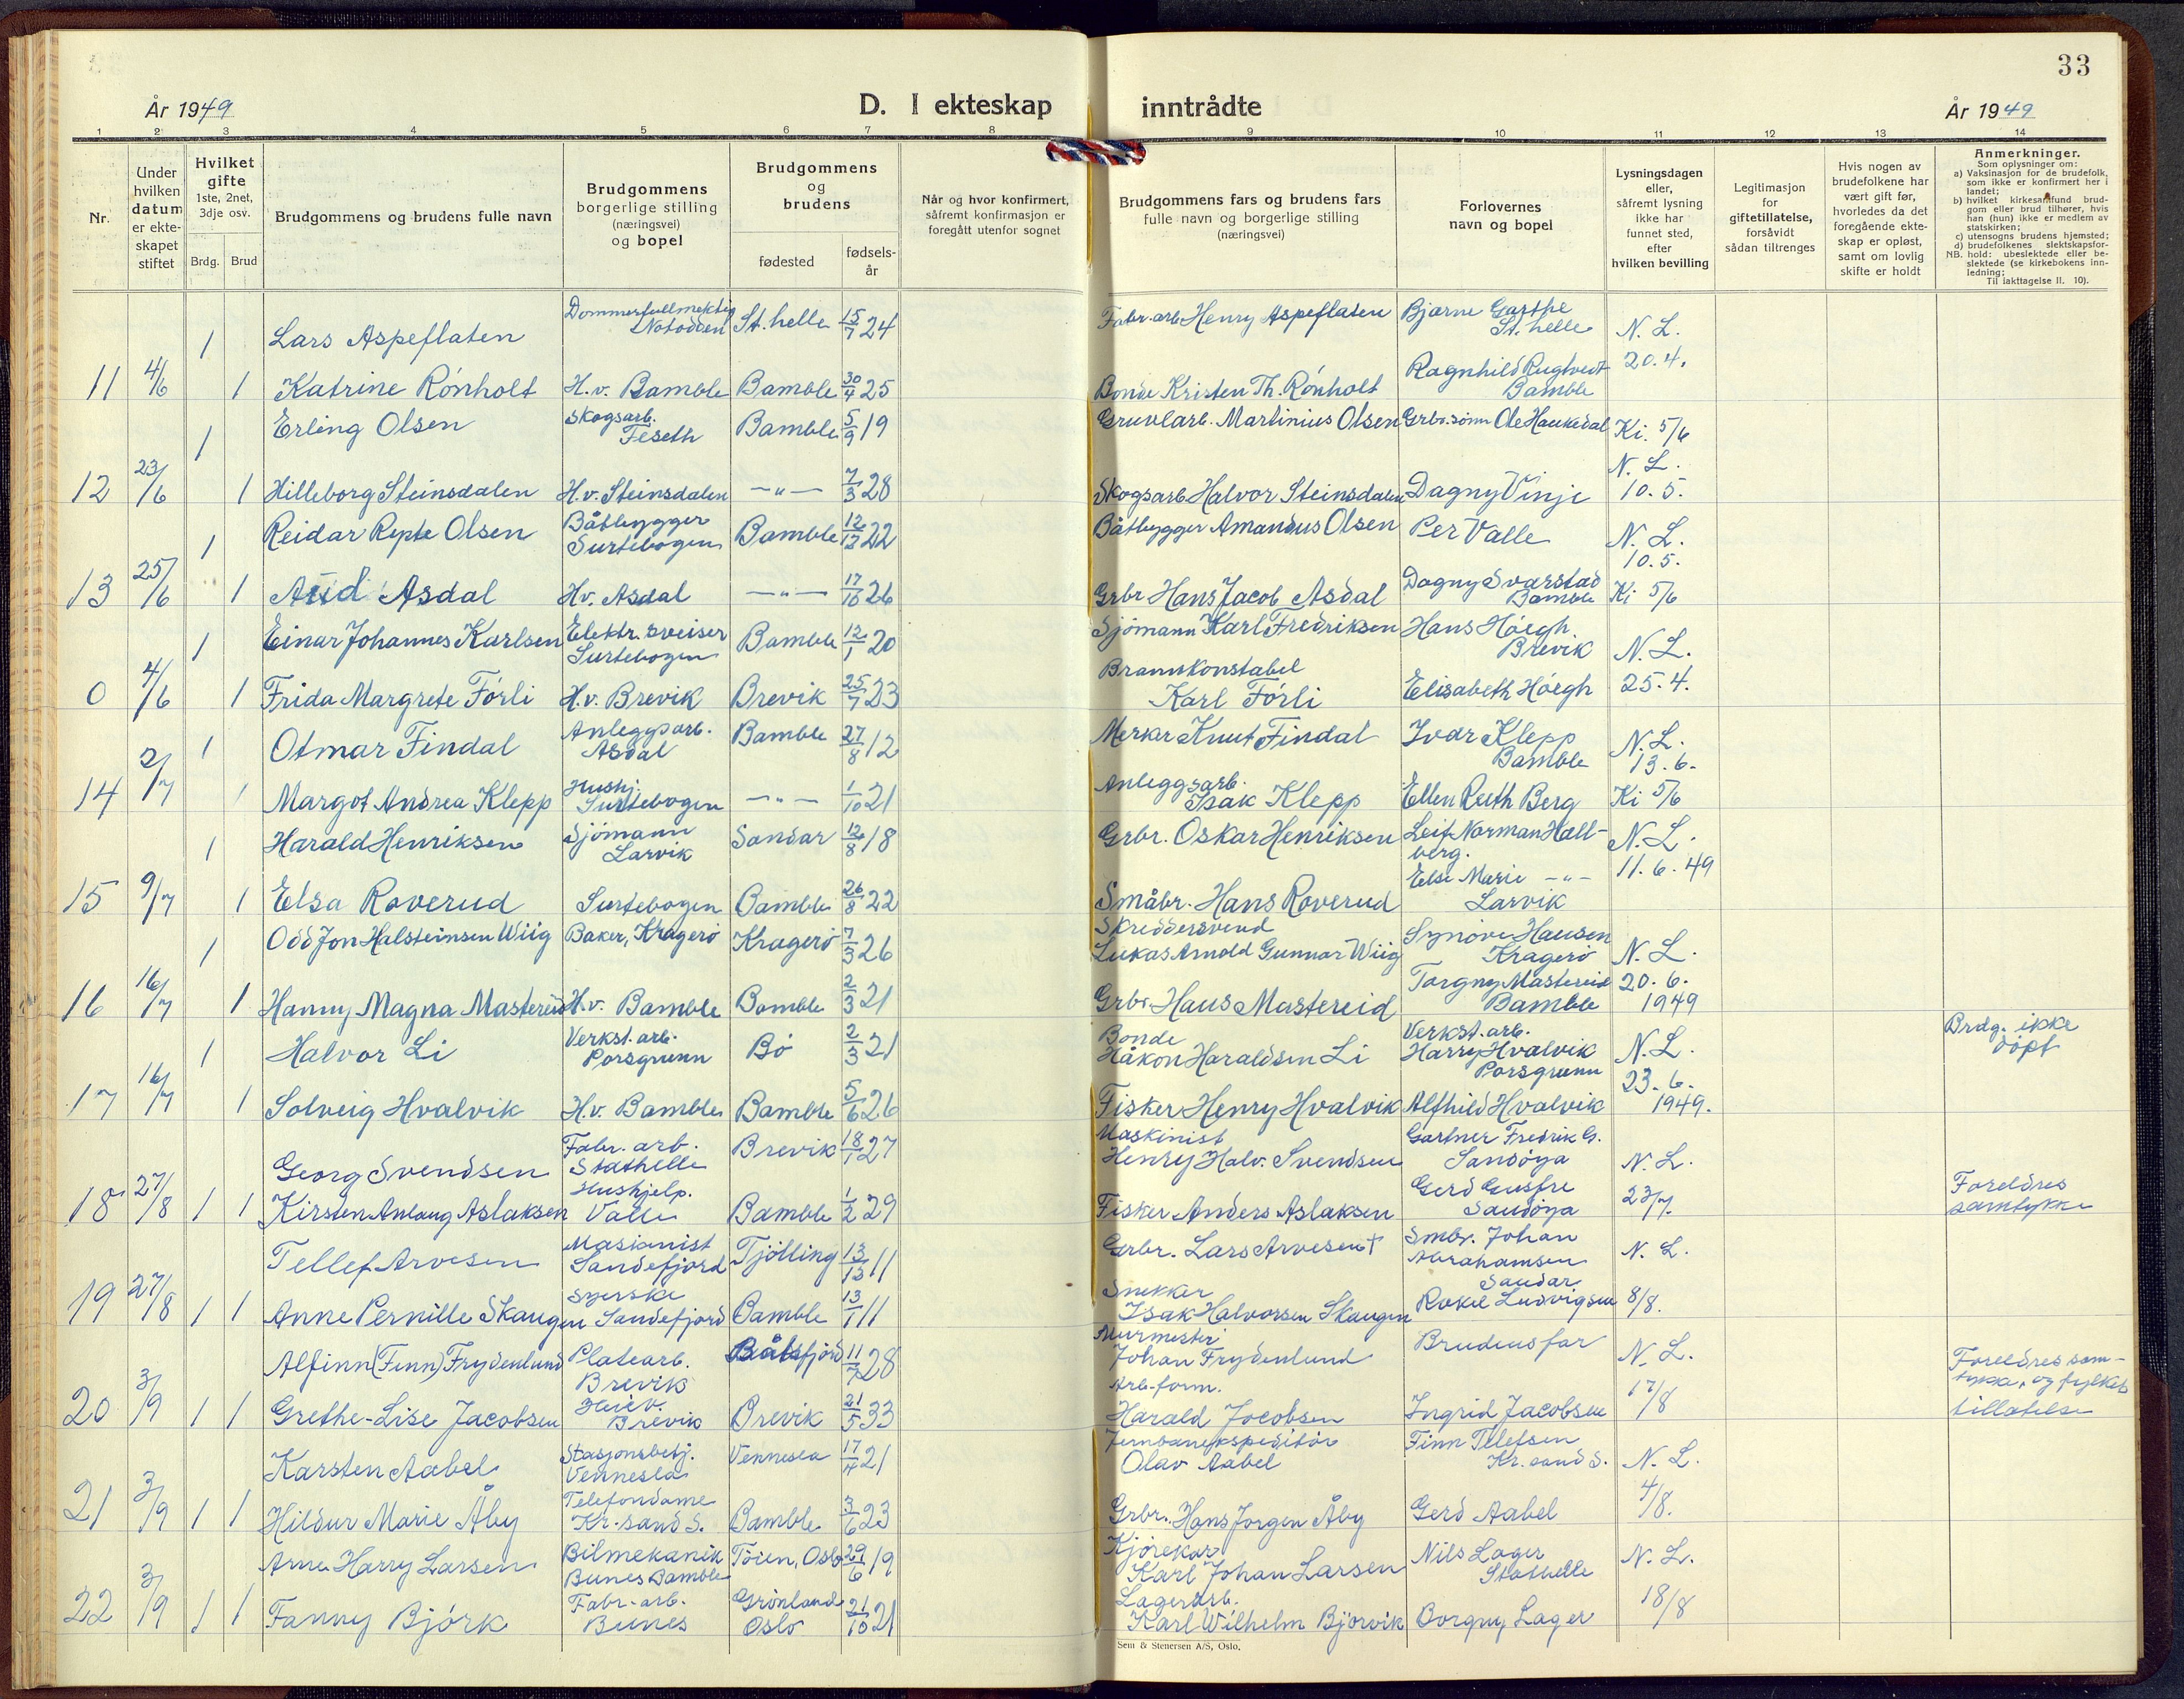 33
År 1949
D. I ekteskap inntrådte
År 1949
1 2 3 4 5 6 7 8 9 10 11 12 13 14
Nr.
Under hvilken datum er ekteskapet stiftet
Hvilket gifte 1ste, 2net, 3dje osv.
Brdg. Brud
Brudgommens og brudens fulle navn
Brudgommens borgerlige stilling (næringsvei) og bopel
Brudgommens og brudens
fødested
fødsels-år
Når og hvor konfirmert, såfremt konfirmasjon er foregått utenfor sognet
Brudgommens fars og brudens fars fulle navn og borgerlige stilling (næringsvei)
Forlovernes navn og bopel
Lysningsdagen eller, såfremt lysning ikke har funnet sted, efter hvilken bevilling
Legitimasjon for giftetillatelse, forsåvidt sådan tiltrenges
Hvis nogen av brudefolkene har vært gift før, hvorledes da det foregående ekteskap er opløst, samt om lovlig skifte er holdt
Anmerkninger.
Som oplysninger om:
a) Vaksinasjon for de brudefolk, som ikke er konfirmert her i landet;
b) hvilket kirkesamfund brudgom eller brud tilhører, hvis han (hun) ikke er medlem av statskirken;
c) utensogns brudens hjemsted;
d) brudefolkenes slektskapsforhold: ubeslektede eller beslektede (se kirkebokens innledning;
NB.
Til iakttagelse II. 10).
1 Lars Aspeflaten Dommerfullmektig Notodden St.helle 15/7 24 Fabr.arb Henry Aspeflaten Bjarne Garthe St.helle N.L.
11 4/6 1 Katrine Rönholt H.v. Bamble Bamble 30/4 25 Bonde Kristen Th. Rönholt Ragnhild Rugtvedt Bamble 20.4.
1 Erling Olsen Skogsarb. Feseth Bamble 5/9 19 Gruvearb. Martinius Olsen Grbr.sönn Ole Haukedal Ki. 5/6
12 23/6 1 Hilleborg Steinsdalen H.v. Steinsdalen —"— 7/3 28 Skogsarb. Halvor Steinsdalen Dagny Vinje N.L. 10.5.
1 Reidar Repte Olsen Båtbygger Surtebogen Bamble 12/12 22 Båtbygger Amandus Olsen Per Valle N.L. 10.5.
13 25/6 1 Aud Asdal Hv. Asdal —"— 17/10 26 Grbr Hans Jacob Asdal Dagny Svarstad Bamble Ki 5/6
1 Einar Johannes Karlsen Elektr. sveiser Surtebogen Bamble 12/1 20 Sjömann Karl Fredriksen Hans Höegh. Brevik N.L.
0 4/6 1 Frida Margrete Förli H.v. Brevik Brevik 25/7 23 Brannkonstabel Karl Förli Elisabeth Höegh 25.4.
1 Otmar Findal Anleggsarb. Asdal Bamble 27/8 12 Knut Findal Ivar Klepp Bamble N.L. 13.6.
14 2/7 1 Margot Andrea Klepp Hushj. Surtebogen —"— 1/10 21 Anleggsarb. Isak Klepp Ellen Ruth Berg Ki 5/6
1 Harald Henriksen Sjömann Larvik Sandar 12/8 18 Grbr. Oskar Henriksen Leif Norman Hallberg. N.L.
15 9/7 1 Elsa Roverud Surtebogen Bamble 26/8 22 Småbr. Hans Roverud Else Marie —"— Larvik 11.6.49
1 Odd Jon Halsteinsen Wiig Baker, Kragerö Kragerö 7/3 26 Skreddersvend Lukas Arnold Gunnar Wiig Synöve Hansen Kragerö N.L.
16 16/7 1 Hanny Magna Mastereid H.v. Bamble Bamble 2/3 21 Grbr. Hans Mastereid Torgny Mastereid Bamble 20.6. 1949
1 Halvor Li Verkst.arb. Porsgrunn Bö 2/3 21 Bonde Håkon Haraldsen Li Verkst.arb. Harry Hvalvik Porsgrunn N.L. Brdg. ikke döpt
17 16/7 1 Solveig Hvalvik H.v. Bamble Bamble 5/6 26 Fisker Henry Hvalvik Alfhild Hvalvik 23.6. 1949.
Georg Svendsen Fabr.arb. Stathelle Brevik 18/1 27 Maskinist Henry Halv. Svendsen Gartner Fredrik G. Sandöya N.L.
18 27/8 1 1 Kirsten Anlaug Aslaksen Hushjelp. Valle Bamble 1/2 29 Fisker Anders Aslaksen Gerd Gusfre Sandöya 23/7. Foreldres samtykke
Tellef Arvesen Maskinist Sandefjord Tjölling 13/12 11 Grbr. Lars Arvesen† Smbr. Johan Abrahamsen Sandar N.L.
19 27/8 1 1 Anne Pernille Skaugen Syerske Sandefjord Bamble 13/1 11 Snekker Isak Halvorsen Skaugen Rakel Ludvigsen 8/8.
Alfinn (Finn) Frydenlund Platearb. Brevik Båtsfjord 11/7 28 Murmester Johan Frydenlund Brudens far N.L.
20 3/9 1 1 Grethe-Lise Jacobsen Brevik Brevik 21/5 33 Arb.form. Harald Jacobsen Ingrid Jacobsen 17/8 Foreldres samtykke, og fylkets tillatelse
Karsten Aabel Stasjonsbetj. Vennesla Vennesla 17/4 21 Jernbaneekspeditör Olav Aabel Finn Tellefsen Kr.sand S. N.L.
21 3/9 1 1 Hildur Marie Åby Telefondame Kr.sand S. Bamble 3/6 23 Grbr. Hans Jorgen Åby Gerd Aabel 4/8.
Arne Harry Larsen Bilmekanik Bunes Bamble Töien, Oslo 29/6 19 Kjörekar Karl Johan Larsen Nils Lager Stathelle N.L.
22 3/9 1 1 Fanny Björk Fabr.arb. Bunes Grönland Oslo 21/10 21 Lagerarb. Karl Wilhelm Bjorvik Borgny Lager 18/8
Sem & Stenersen A/S, Oslo.